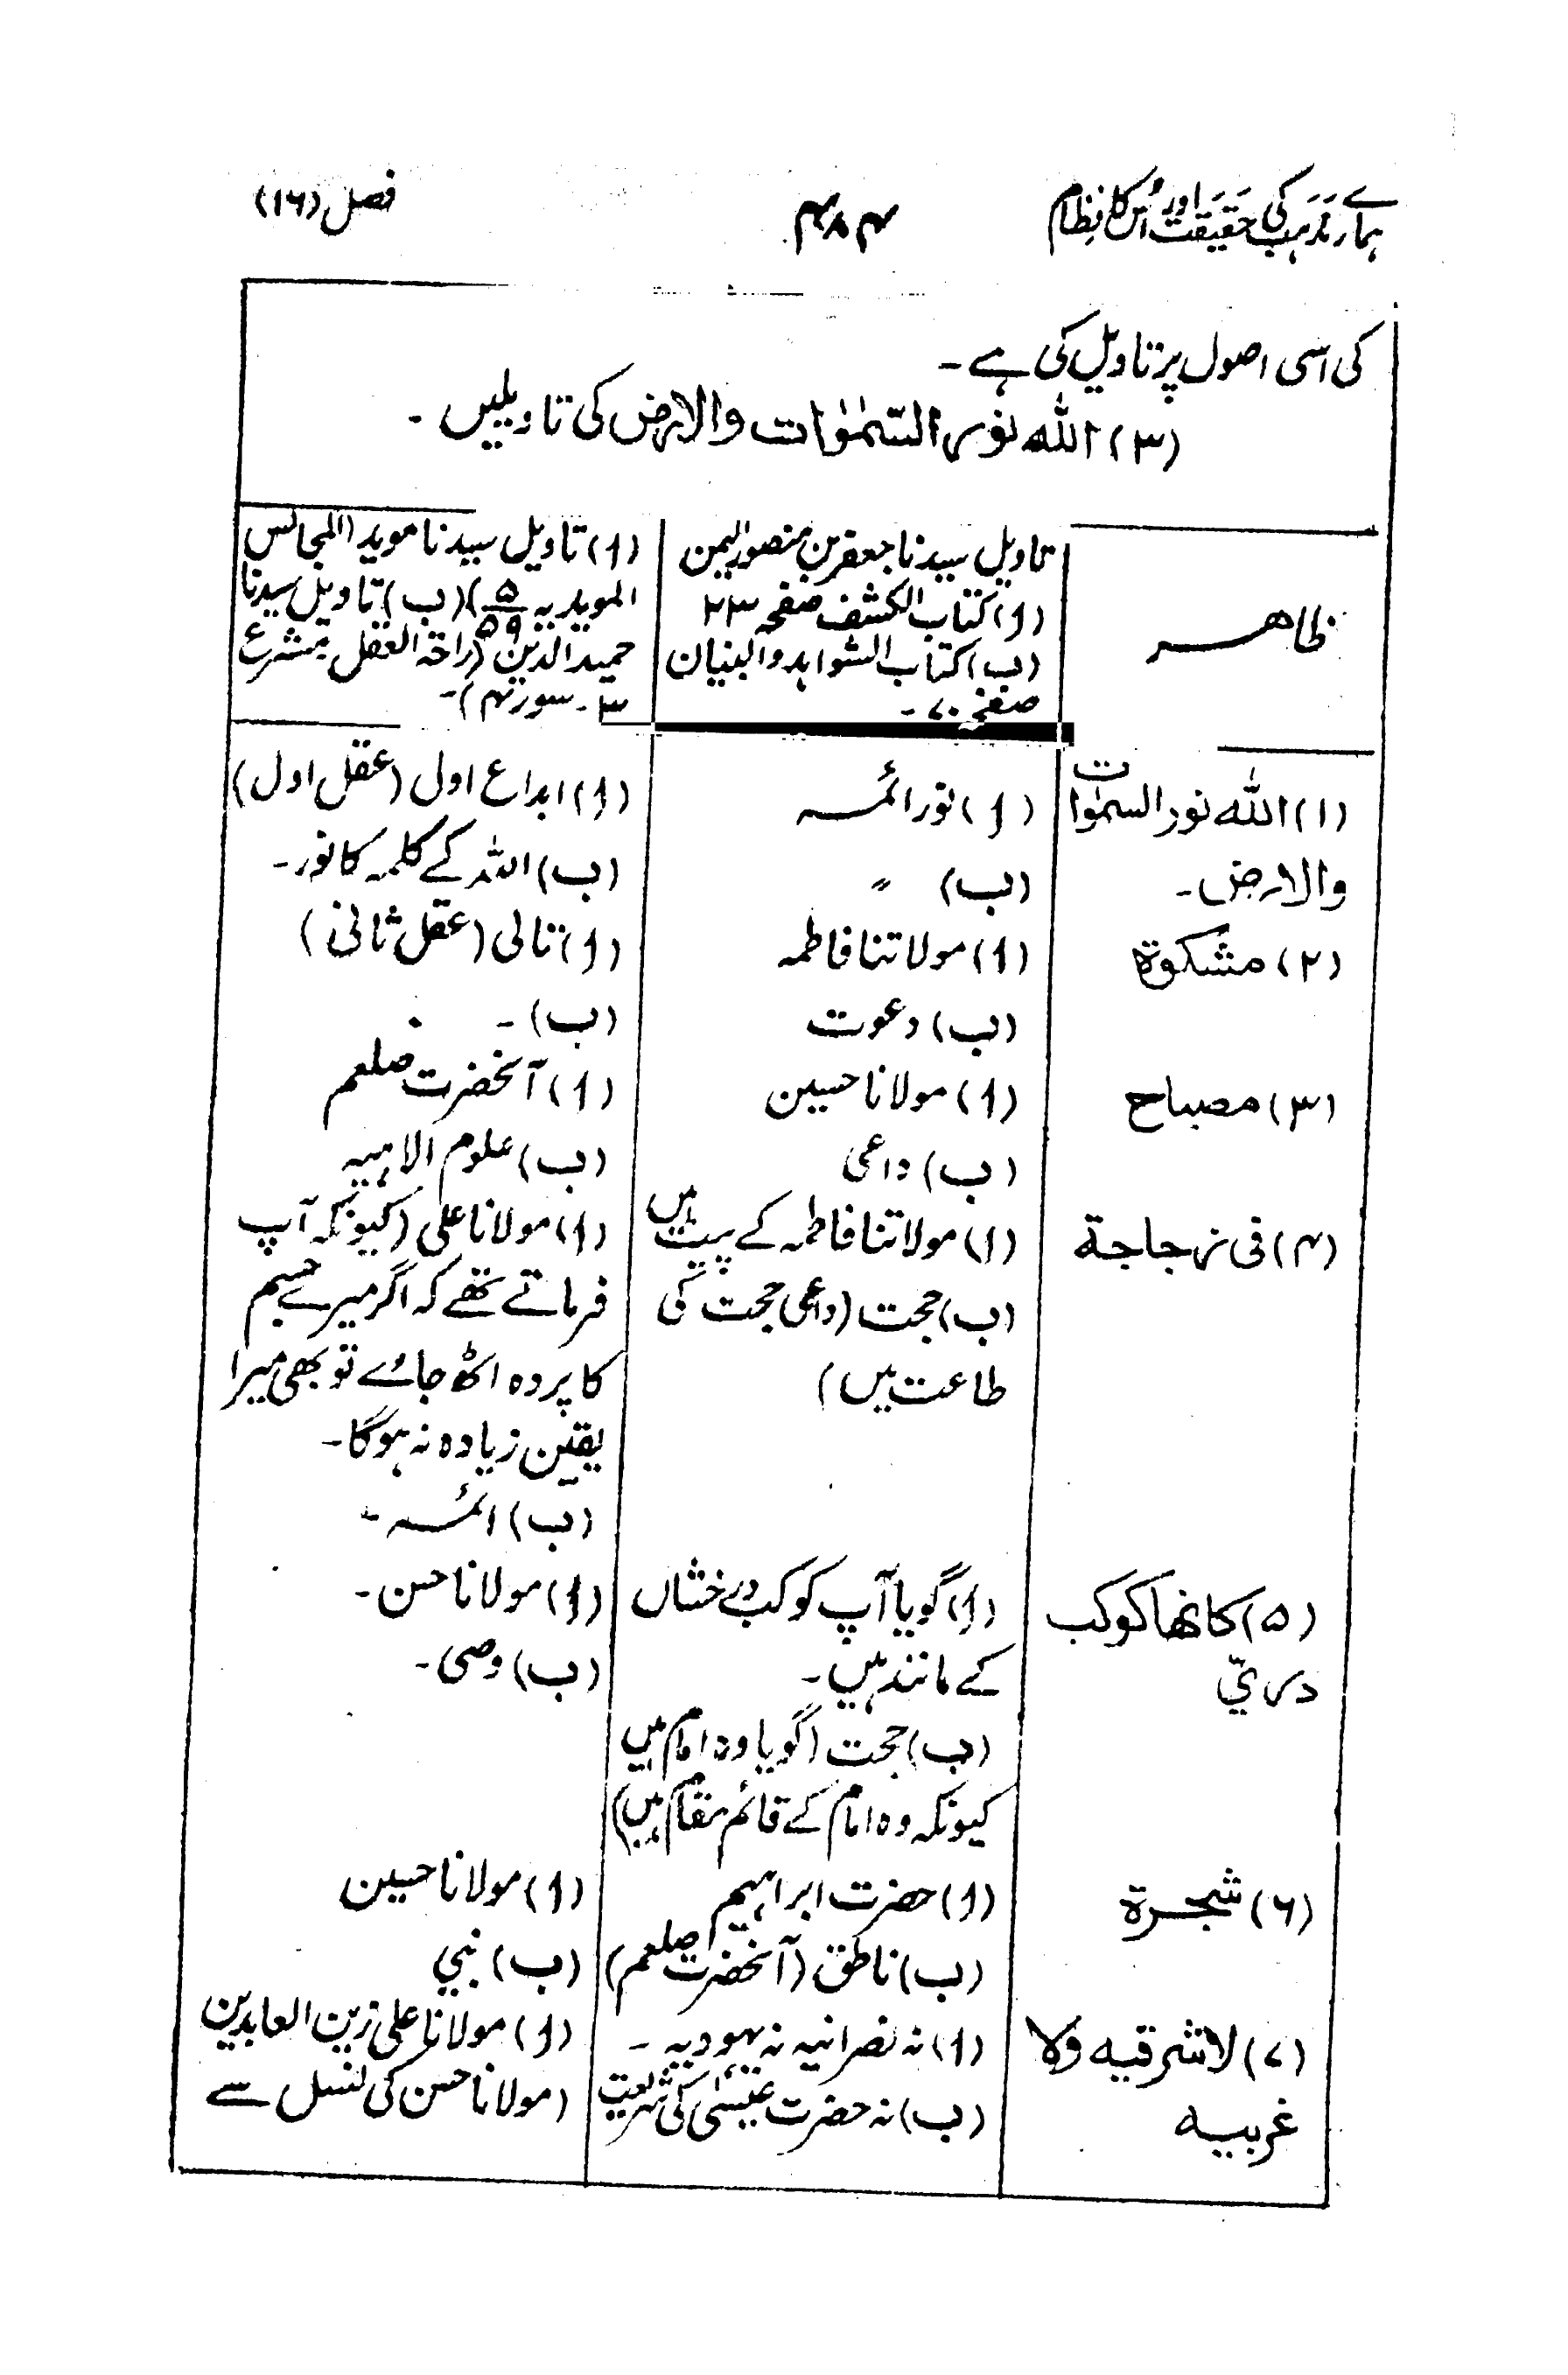 ہمارے مذہب کی حقیقت اور اُس کا نظام
۴۸۴
فصل (۱۶)
کی اسی اصول پر تاویل کی ہے۔
(۳) الله نور السّمٰوٰات والارض کی تاویلیں۔
ظاہر
تاویل سیدنا جعفر بن منصور الیمن
(ا) کتاب الکشف صفحہ ۲۳
(ب) کتاب الشواہد والبنیان
صفحہ ۷۰۔
(ا) تاویل سیدنا موید (المجالس
المویدیہ ۵/۵۹) (ب) تاویل سیدنا
حمید الدین (راحۃ العقل مشرع
۳۔ سور ۴)۔
(۱) الله نور السمٰوات
والارض۔
(ا) نور ائمہ
(ب) 〃
(ا) ابداع اول (عقل اول)
(ب) اللہ کے کلمہ کا نور۔
(۲) مشكوة
(ا) مولاتنا فاطمہ
(ب) دعوت
(ا) تالی (عقل ثانی)
(ب) ۔
(۳) مصباح
(ا) مولانا حسین
(ب) داعی
(ا) آنحضرت صلعم
(ب) علوم الاہیہ
(۴) فی زجاجة
(ا) مولاتنا فاطمہ کے پیٹ میں
(ب) حجت (داعی حجت کی
طاعت میں)
(ا) مولانا علی (کیونکہ آپ
فرماتے تھے کہ اگر میرے جسم
کا پردہ اٹھ جائے تو بھی میرا
یقین زیادہ نہ ہوگا۔
(ب) ائمہ۔
(۵) كانها كوكب
دري
(ا) گویا آپ کوکب درخشاں
کے مانند ہیں۔
(ب) حجت (گویا وہ امام ہیں
کیونکہ وہ امام کے قائم مقام ہیں)
(ا) مولانا حسن۔
(ب) وصی۔
(۶) شجرة
(ا) حضرت ابراہیم
(ب) ناطق (آنحضرت صلعم)
(ا) مولانا حسین
(ب) نبی
(۷) لا شرقیہ ولا
غربیہ
(ا) نہ نصرانیہ نہ یہودیہ۔
(ب) نہ حضرت عیسٰی کی شریعت
(ا) مولانا علی زین العابدین
(مولانا حسن کی نسل سے